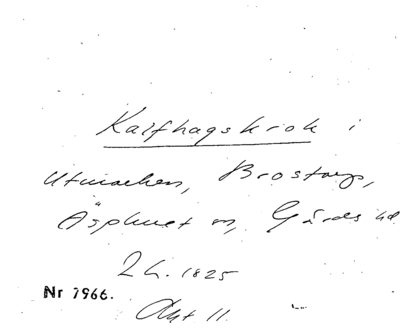 Kalfhagskrok i
Utmarken, Brostorp,
Äsphult sn, Gärds hd
L. 1825
Nr 7966.
Akt 11.